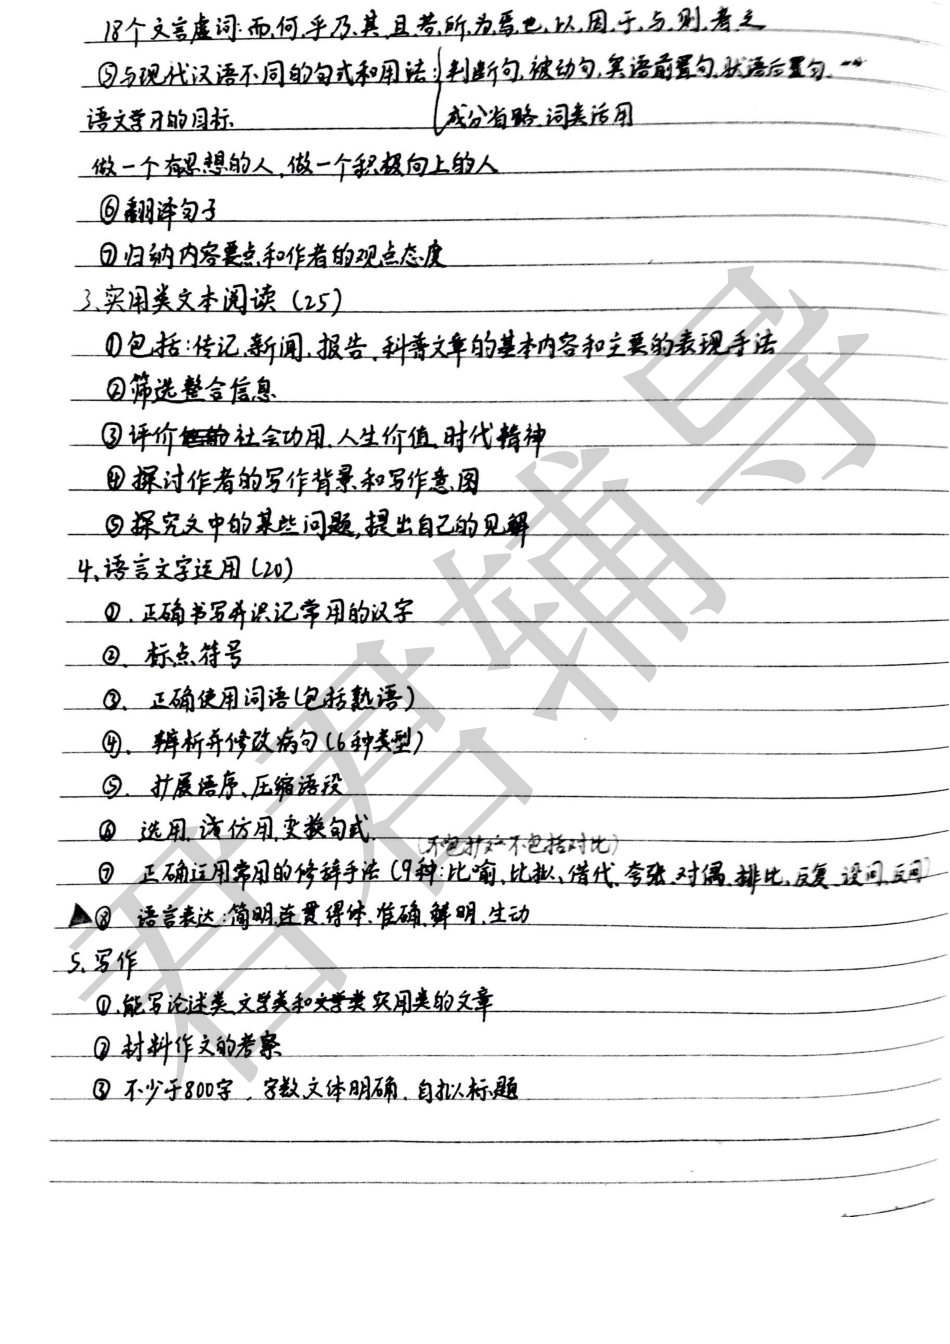 18个文言虚词:而、何、乎、乃、其、且、若、所、为、焉、也、以、因、于、与、则、者、之
⑤与现代汉语不同的句式和用法:判断句,被动句,宾语前置句,状语后置句……
语文学习的目标
成分省略、词类活用
做一个有思想的人,做一个积极向上的人
⑥翻译句子
⑦归纳内容要点和作者的观点态度
3、实用类文本阅读(25)
①包括:传记、新闻、报告、科普文章的基本内容和主要的表现手法
②筛选整合信息
③评价社会功用、人生价值、时代精神
④探讨作者的写作背景和写作意图
⑤探究文中的某些问题,提出自己的见解
4、语言文字运用(20)
①、正确书写并识记常用的汉字
②、标点符号
③、正确使用词语(包括熟语)
④、辨析并修改病句(6种类型)
⑤、扩展语序、压缩语段
⑥ 选用、仿用、变换句式
不包括对比)
⑦ 正确运用常用的修辞手法(9种:比喻、比拟、借代、夸张、对偶、排比、反复、设问、反问)
▲⑧ 语言表达:简明、连贯、得体、准确、鲜明、生动
5、写作
①、能写论述类、文学类和实用类的文章
② 材料作文的考察
③ 不少于800字,字数、文体明确、自拟标题
君君辅导